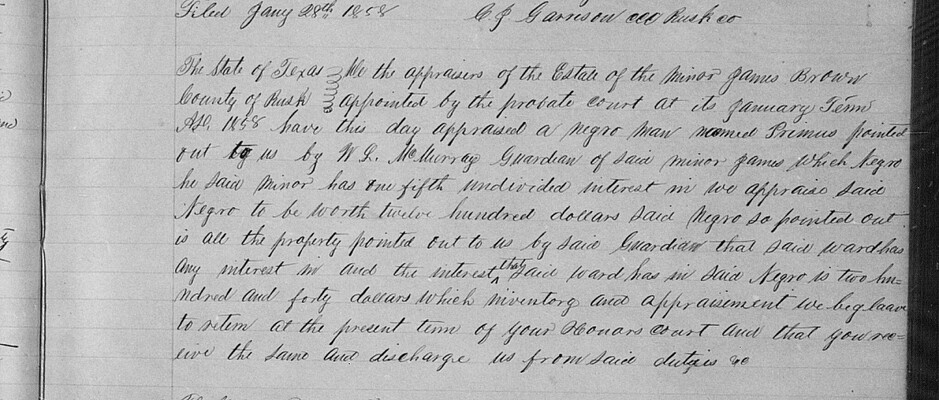 Filed Jany 28th 1858 C J Garrison CCC Rusk co
The State of Texas We the appraisers of the Estate of the minor James Brown
County of Rusk appointed by the probate court at its January Term
AD. 1858 have this day appraised a negro man named Primus pointed
out to us by W. L. McMurray Guardian of said minor James which Negro
he said minor has one fifth undivided interest in we appraise said
Negro to be worth twelve hundred dollars said Negro so pointed out
is all the property pointed out to us by said Guardian that said ward has
any interest in and the interest that said ward has in said Negro is two hu=
ndred and forty dollars which inventory and appraisement we beg leave
to return at the present term of your Honors court and that you rec=
eive the same and discharge us from said duties &c